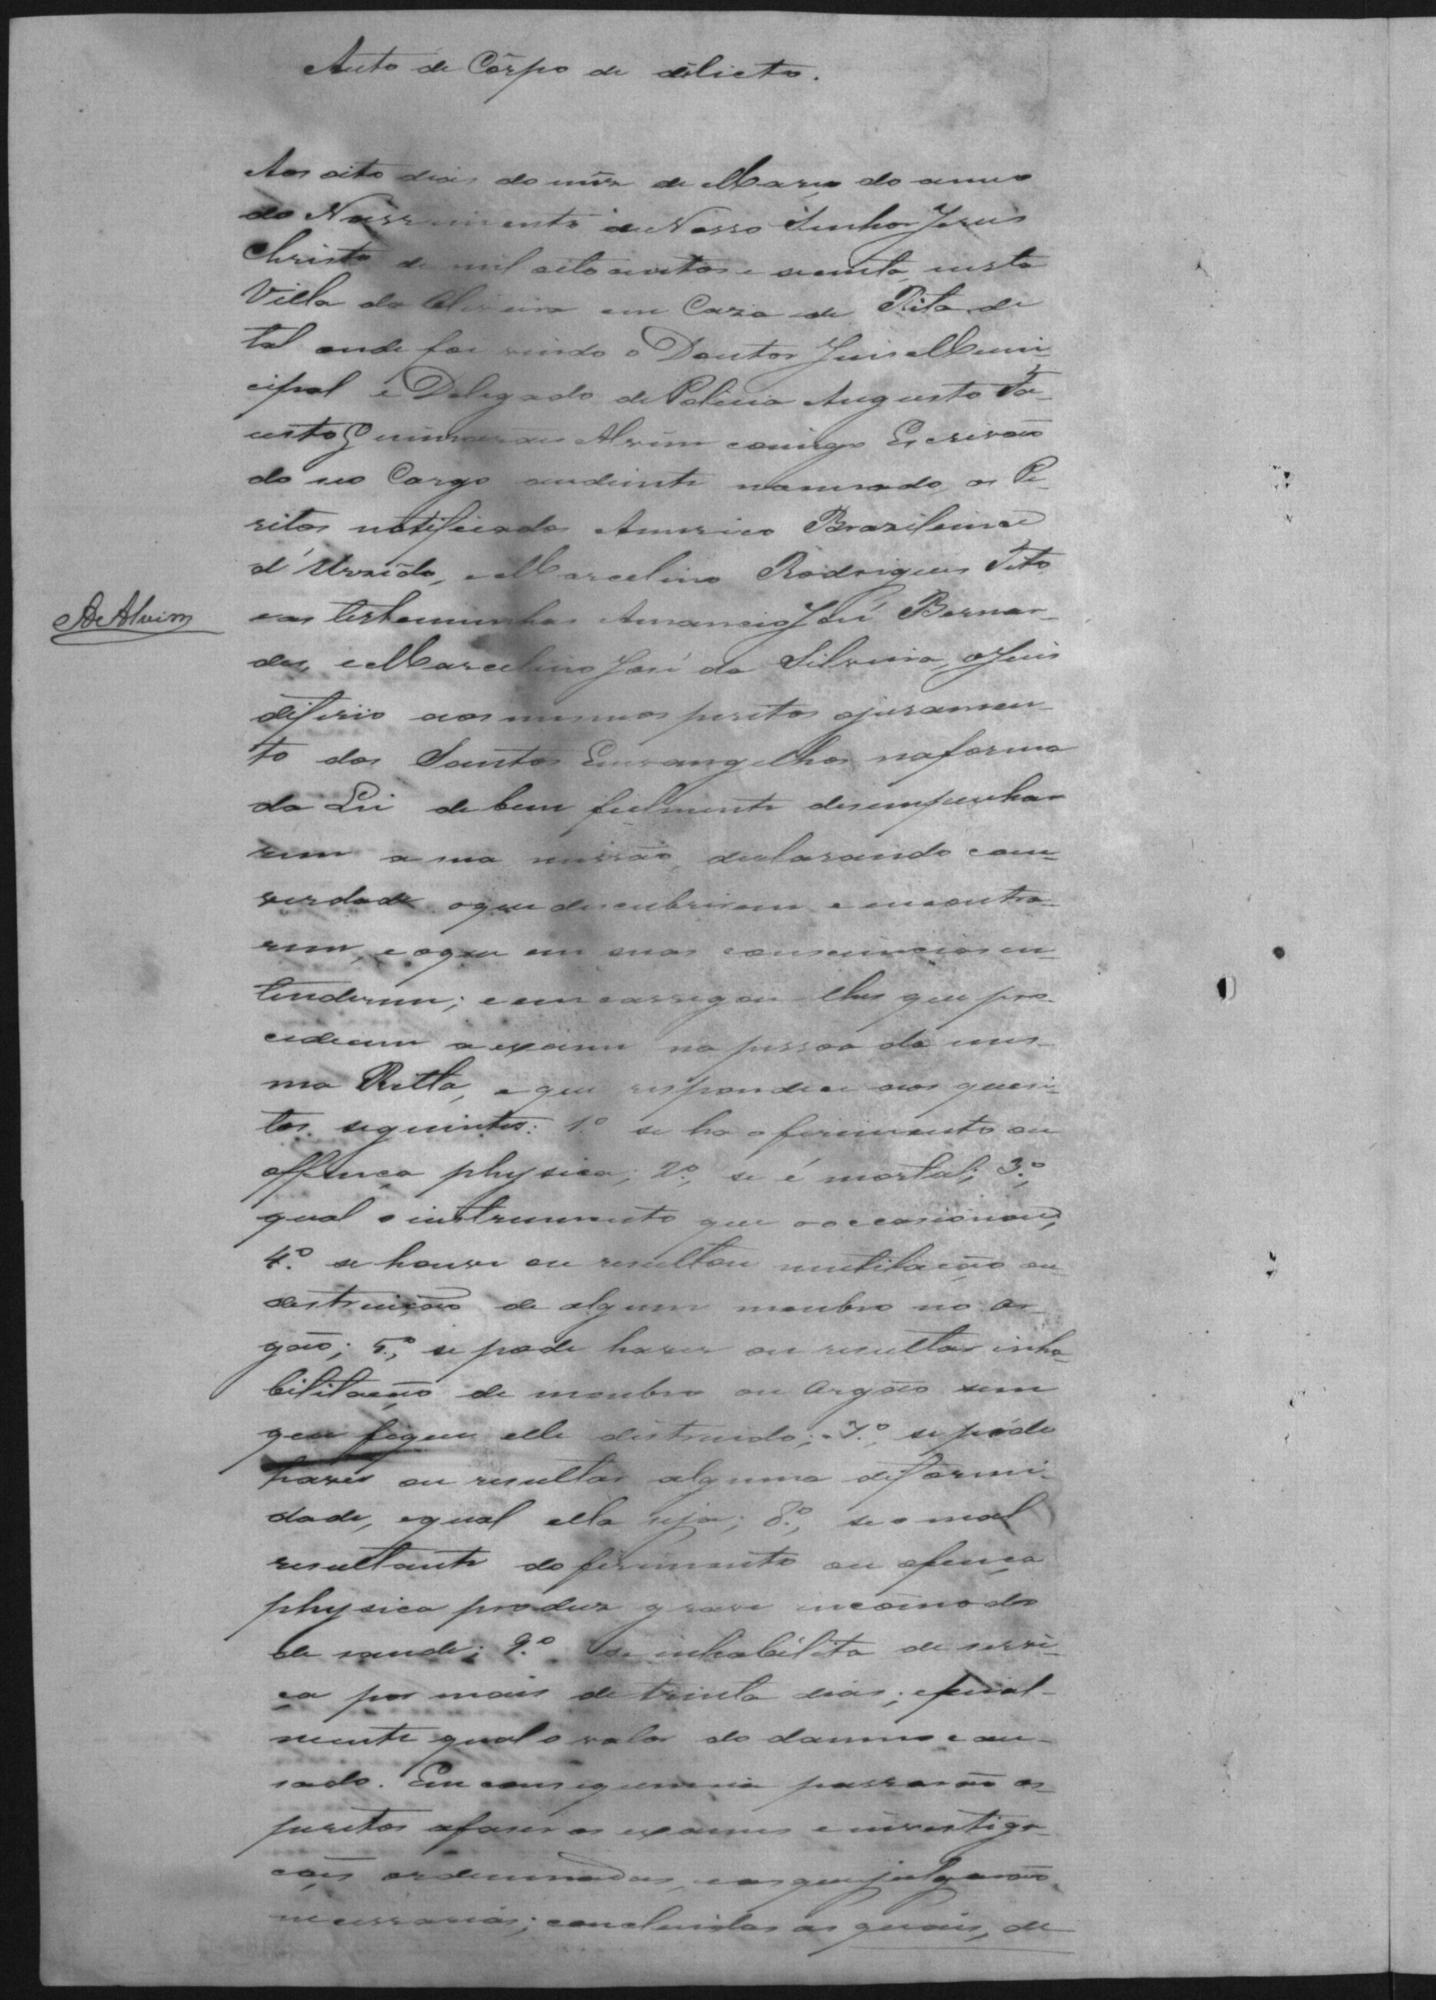 Auto de Côrpo de delicto.
Aos oito dias do mês de Março do anno
do Nascimento de Nosso Senhor Jesus
Christo de mil oito centos e secenta, nesta
Villa da Oliveira em Caza de Rita de
tal onde foi vindo o Doutor Juis Muni-
cipal e Delegado de Policia Augusto Fa-
usto Guimaraes Alvim comigo Escrivão
do seo Cargo audiente nomeado, os Pe-
ritos notificados Americo Brazileiro
d'             , e Marcelino Rodrigues Tito
AdeAlvim
eas testemunhas Amancio José Bernar-
des, e Marcelino José da Silveira, o Juis
diferio aos mesmos peritos ojuramen-
to dos Santos Envangelhos naforma
da Lei de bem fielmente desempenha
rem a sua missão, declarando com
verdade oque descubrirem e encontra-
rem, e oque em suas consciencias en
tenderem; e encarregou-lhes que pro-
cedecem a exame na pessoa da mes-
ma Ritta, e que respondece aos quesi-
tos seguintes: 1.º se ha o ferimento ou
offença physica; 2.º, se é mortal; 3.º,
qual o instrumento que o occasionou;
4.º se houve ou resultou mutilação ou
destruição de algum membro no or-
gão; 5.º, se pode haver ou resultar inha-
bilitação de membro ou orgão sem
que fique elle distruido; 7.º, se póde
haver ou resultar alguma diformi-
dade, equal ella seja; 8.º, se o mal
resultante do ferimento ou ofença
physica produz grave incomodo
de saude; 9.º se inhabilita de servi-
ço por mais de trinta dias; efinal-
mente qual o valor do damno cau-
sado. Em consequencia passarão os
peritos afaser os exames e investiga-
ções ordennadas, e as que julgarão
necessarias; concluidas as quais, de